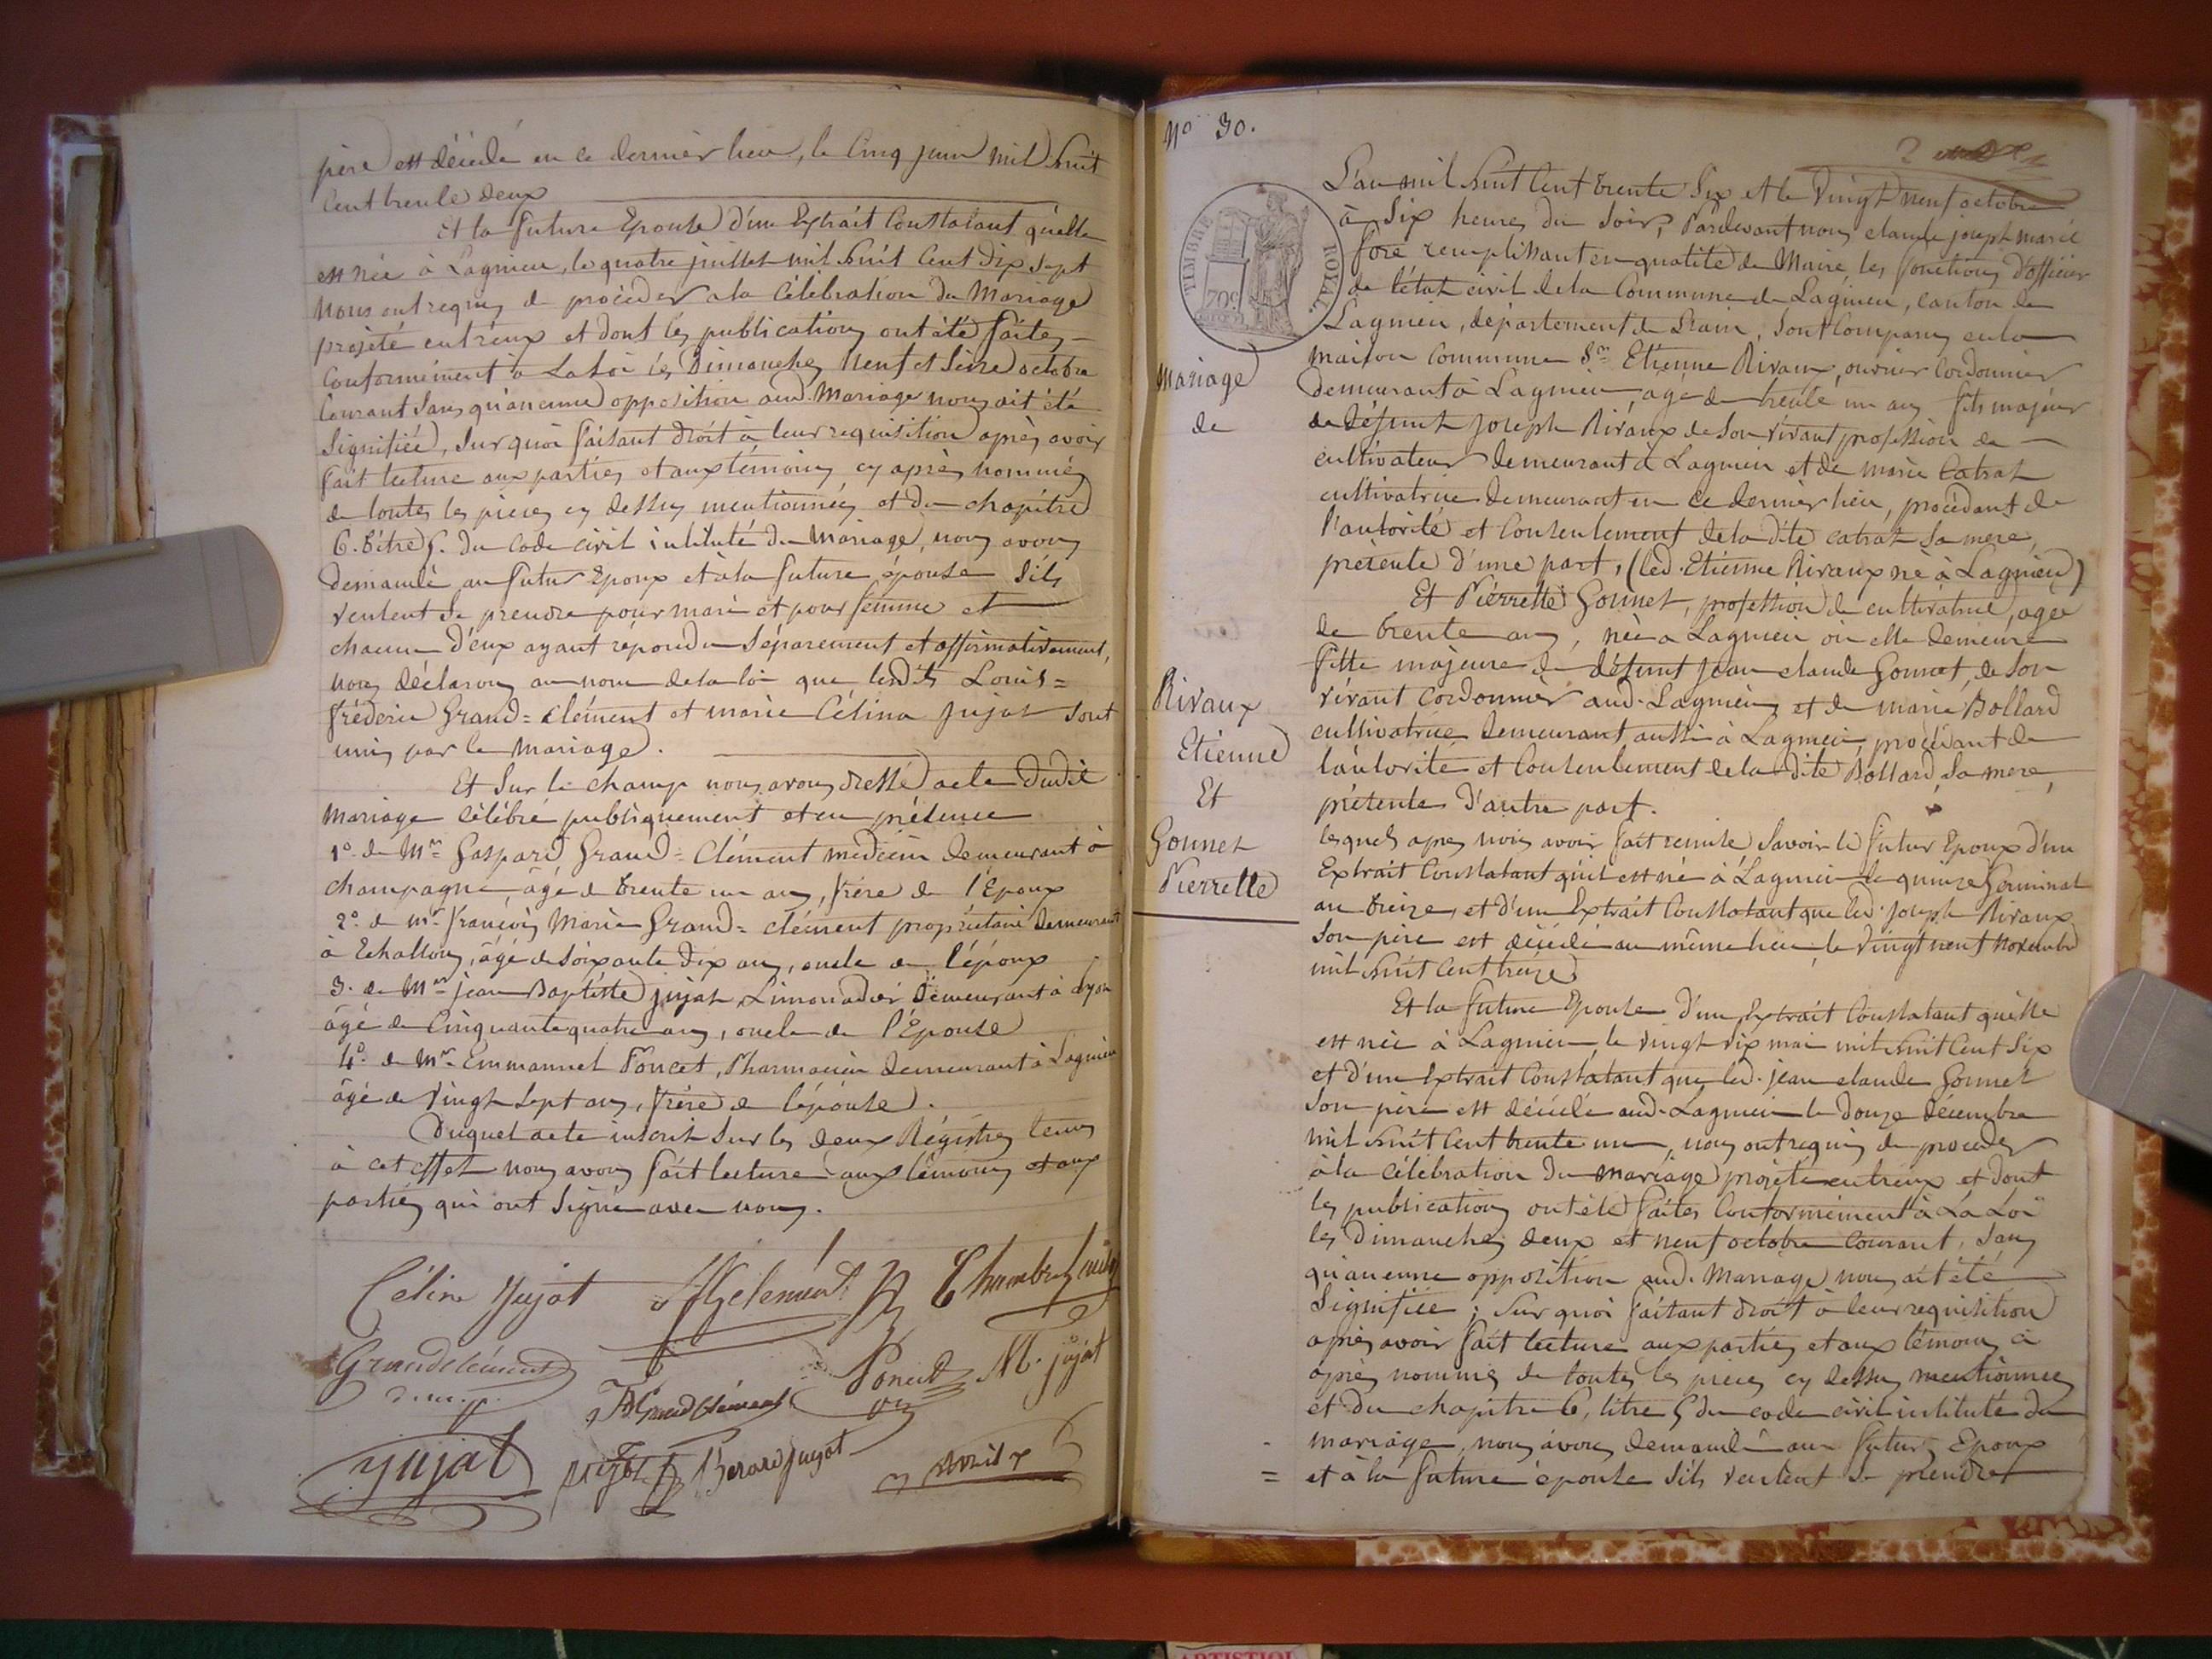 père est décédé en ce dernier lieu, le Cinq juin mil huit
Cent trente deux
Et la future Epouse d'un Extrait Constatant qu'elle
est née à Lagnieu, le quatre juillet mil huit Cent dix Sept
Nous ont requis de procéder a la Célébration du Mariage
projété entr'eux et dont les publications ont été faites
Conformément à La Loi les Dimanches Neuf et Seize octobre
Courant Sans qu'aucune opposition aud. Mariage nous ait été
Signifiée, Sur quoi faisant droit à leur requisition après avoir
fait lecture aux parties et aux témoins cy après nommés
de toutes les pièces cy dessus mentionnées et du chapitre
6. titre 5. du Code civil intitulé du Mariage, nous avons
demandé au futur Epoux et à la future épouse S'ils
veulent Se prendre pour mari et pour femme et
chacun d'eux ayant répondu Séparement et affirmativement,
nous déclarons au nom de la loi que lesdits Louis=
fréderic Grand=clément et marie Célina Jujat Sont
unis par le Mariage.
Et Sur le champ nous avons dressé acte dudit
Mariage célébré publiquement et en présence
1° de Mr Gaspard Grand=Clément médecin demeurant à
Champagne âgé de trente un ans, frère de l'Epoux
2° de mr françois Marie Grand=clément propriétaire demeurant
à Echallon, âgé de Soixante dix ans, oncle de l'époux
3. de Mr jean Baptiste jujat Limonadier demeurant à Lyon
âgé de Cinquante quatre ans, oncle de l'Epouse
4° de Mr Emmanuel Poncet, Pharmacien demeurant à Lagnieu
âgé de Vingt Sept ans, frère de l'épouse.
Duquel acte inscrit Sur les deux Régistres tenus
à cet effet nous avons fait lecture aux témoins et aux
parties qui ont Signé avec nous.
Céline Jujat
Grandclément
Poncet M. jujat
Grandclément
Jujat
jujat
No 30.
TIMBRE ROYAL
70c
L'an mil huit Cent trente Six et le Vingt neuf octobre
à Six heures du Soir, Pardevant nous claude joseph marie
fore remplissant en qualité de Maire, les fonctions d'officier
de l'état civil de la Commune de Lagnieu, canton de
Lagnieu, département de L'ain, Sont Comparus en la
maison Commune Sr Etienne Rivaux, ouvrier Cordonnier
Mariage
demeurant à Lagnieu, agé de trente un ans fils majeur
de
de Défunt Joseph Rivaux de Son vivant profession de
cultivateur demeurant à Lagnieu et de marie Catrat
cultivatrice demeurant en ce dernier lieu, procédant de
l'autorité et Consentement de la dite catrat Sa mere,
présente d'une part, (led. Etienne Rivaux né à Lagnieu)
Et Pierrette Gonnet, profession de cultivatrice, agée
de trente ans, née a Lagnieu où elle demeure
fille majeure de défunt Jean claude Gonnet, de Son
Rivaux
vivant Cordonnier aud. Lagnieu, et de marie Bollard
Etienne
cultivatrice demeurant aussi à Lagnieu, procédant de
l'autorité et Consentement de la dite Bollard, Sa mere,
Et
présente D'autre part.
Gonnet
lesquels apres nous avoir fait remise Savoir le futur Epoux d'un
Pierrette
Extrait Constatant qu'il est né à Lagnieu le quinze Germinal
an treize, et d'un Extrait Constatant que led. joseph Rivaux
Son père est décédé au même lieu, le Vingt neuf Novembre
mil huit Cent treize
Et la future Epouse d'un Extrait Constatant qu'elle
est née à Lagnieu, le Vingt Six mai mil huit Cent Six
et d'un Extrait Constatant que led. jean claude Gonnet
Son père est décédé aud. Lagnieu le douze décembre
mil huit Cent trente un, nous ont requis de proceder
à la célébration du mariage projété entr'eux et dont
les publications ont été faites Conformément à La Loi
les Dimanches deux et neuf octobre Courant, Sans
qu'aucune opposition aud. Mariage nous ait été
Signifiée; Sur quoi faisant droit à leur requisition
après avoir fait lecture aux parties et aux témoins ci
après nommés de toutes les pièces cy dessus mentionnées
et du chapitre 6, titre 5 du code civil intitulé du
mariage, nous avons demandé aux futurs Epoux
= et à la future épouse S'ils veulent Se prendre